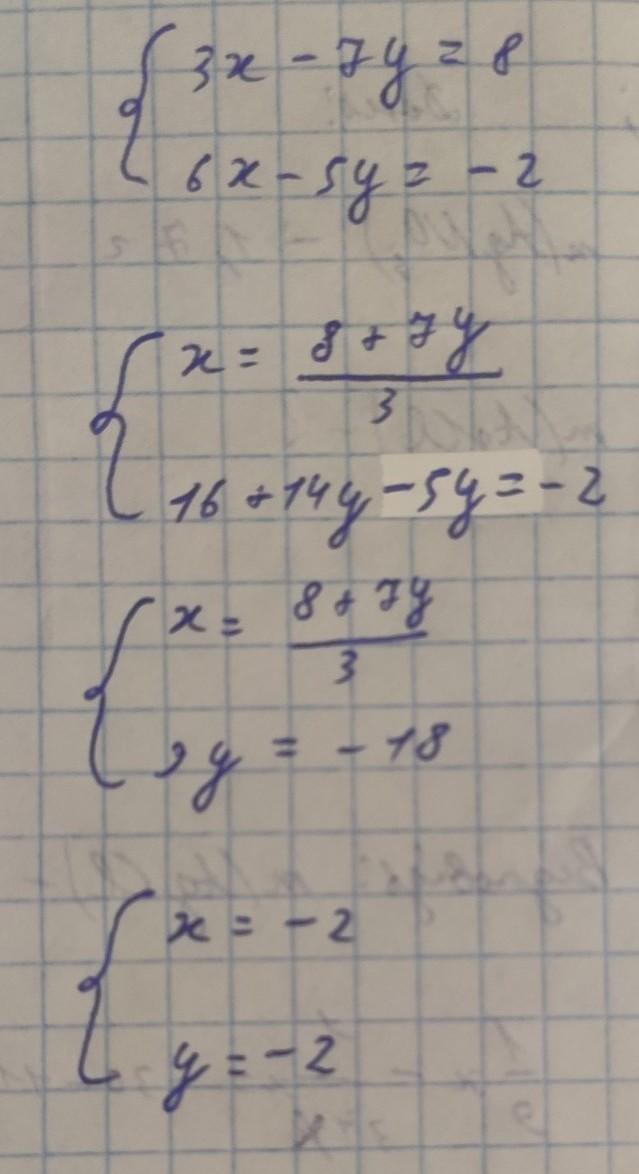 3x - 7y = 8
6x - 5y = - 2
x = (8 + 7y)/3
16 + 14y - 5y = - 2
x = (8 + 7y)/3
9y = - 18
x = - 2
y = - 2